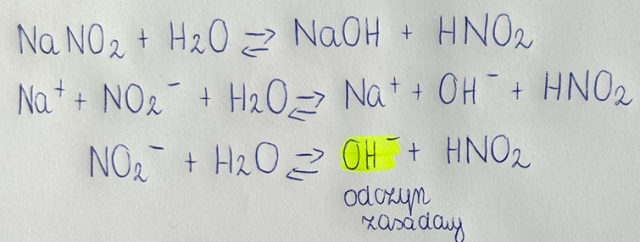 NaNO₂ + H₂O ⇌ NaOH + HNO₂
Na⁺ + NO₂⁻ + H₂O ⇌ Na⁺ + OH⁻ + HNO₂
NO₂⁻ + H₂O ⇌ OH⁻ + HNO₂
odczyn
zasadowy